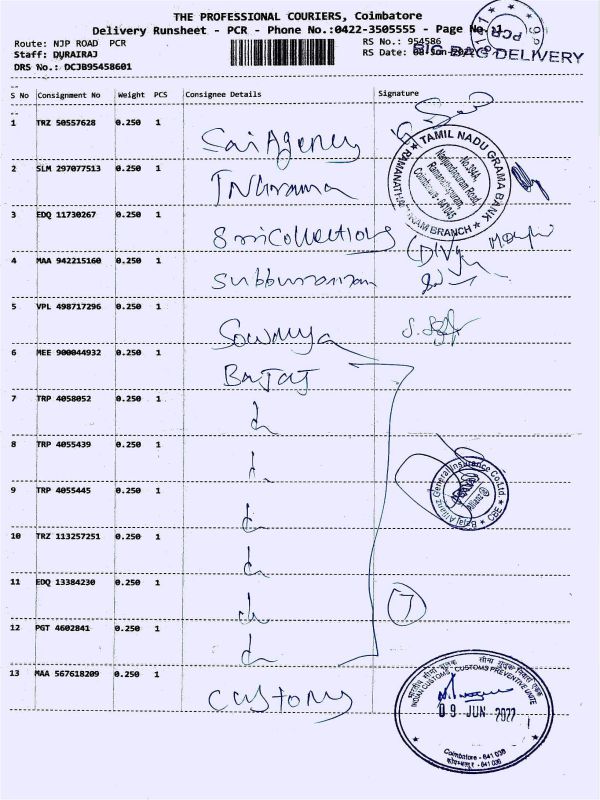 THE PROFESSIONAL COURIERS, Coimbatore
Delivery Runsheet - PCR - Phone No.:0422-3505555 - Page No.:1
Route: NJP ROAD PCR
RS No.: 954586
Staff: DURAIRAJ
RS Date: 08-Jun-2022
BIG BAG DELIVERY
PCR
DRS No.: DCJB95458601
S No Consignment No Weight PCS Consignee Details Signature
1 TRZ 50557628 0.250 1 Sai Agency
2 SLM 297077513 0.250 1 TN Grama
TAMIL NADU GRAMA BANK
No.394A,
Nanjundapuram Road,
Ramanathapuram,
Coimbatore - 641045
RAMANATHAPURAM BRANCH
3 EDQ 11730267 0.250 1 Sri Collections
4 MAA 942215160 0.250 1 Subburaman
5 VPL 498717296 0.250 1 Sowmya
6 MEE 900044932 0.250 1 BAJAJ
7 TRP 4058052 0.250 1
8 TRP 4055439 0.250 1
9 TRP 4055445 0.250 1
Bajaj Allianz General Insurance Co.Ltd. CBE
Allianz
10 TRZ 113257251 0.250 1
11 EDQ 13384230 0.250 1
7
12 PGT 4602841 0.250 1
13 MAA 567618209 0.250 1 Customs
INDIAN CUSTOMS - CUSTOMS PREVENTIVE UNIT
09 JUN 2022
Coimbatore - 641 036